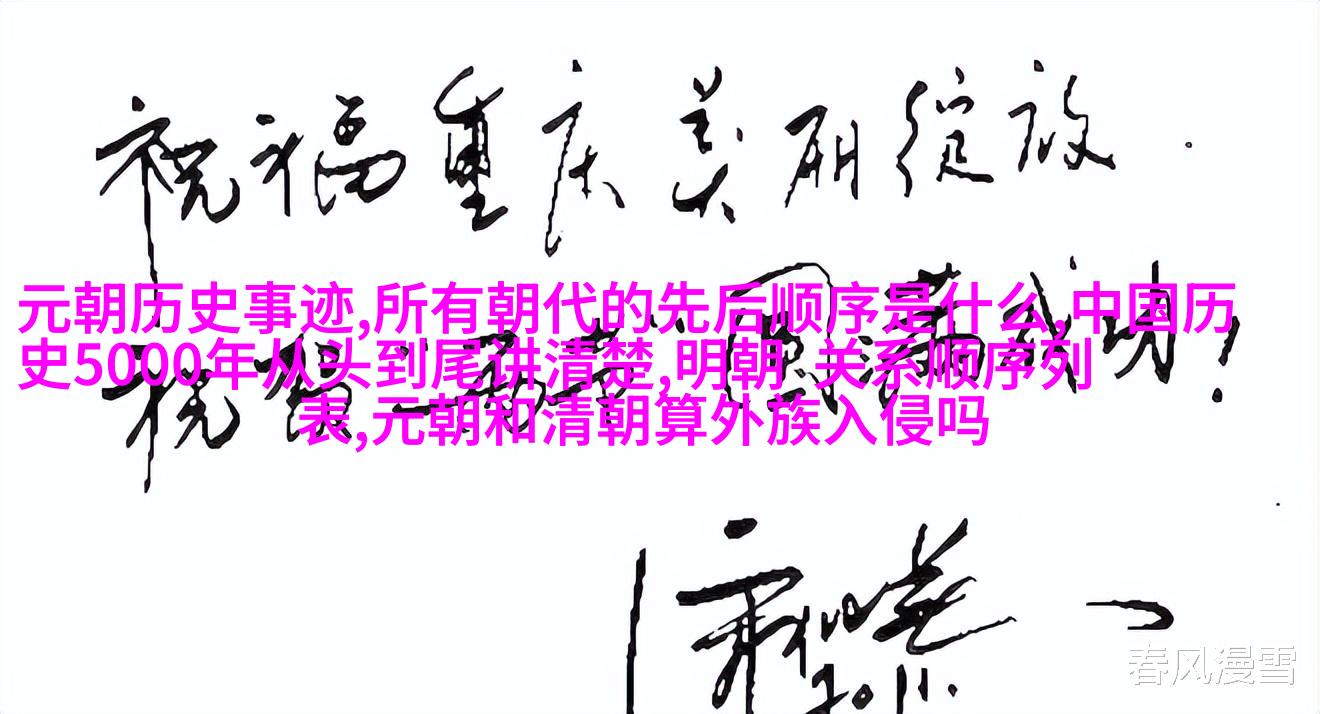 祝福重庆美丽绽放.
元朝历史事迹,所有朝代的先后顺序是什么,中国历
史5000年从头到尾讲清楚,明朝 关系顺序列
表,元朝和清朝算外族入侵吗
祝 圆满成功!
2011.
春风漫雪